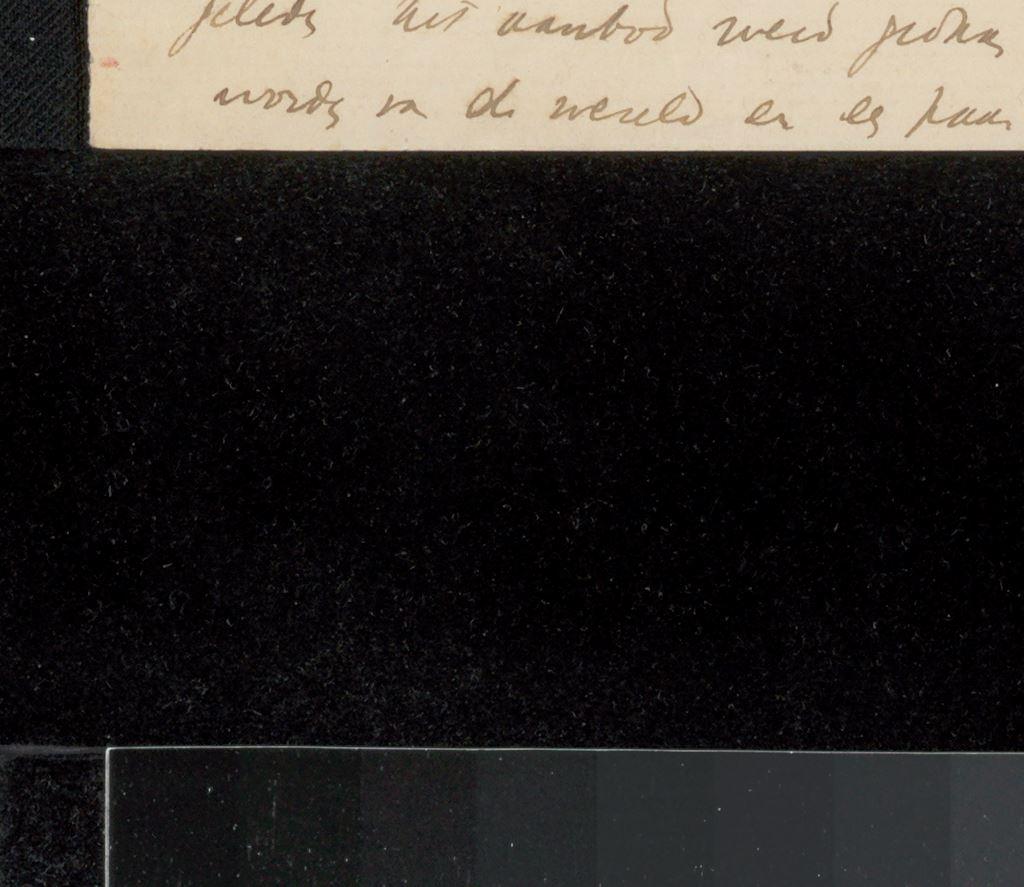 geleden het aanbod werd gedaan
worden in de wereld en een paar